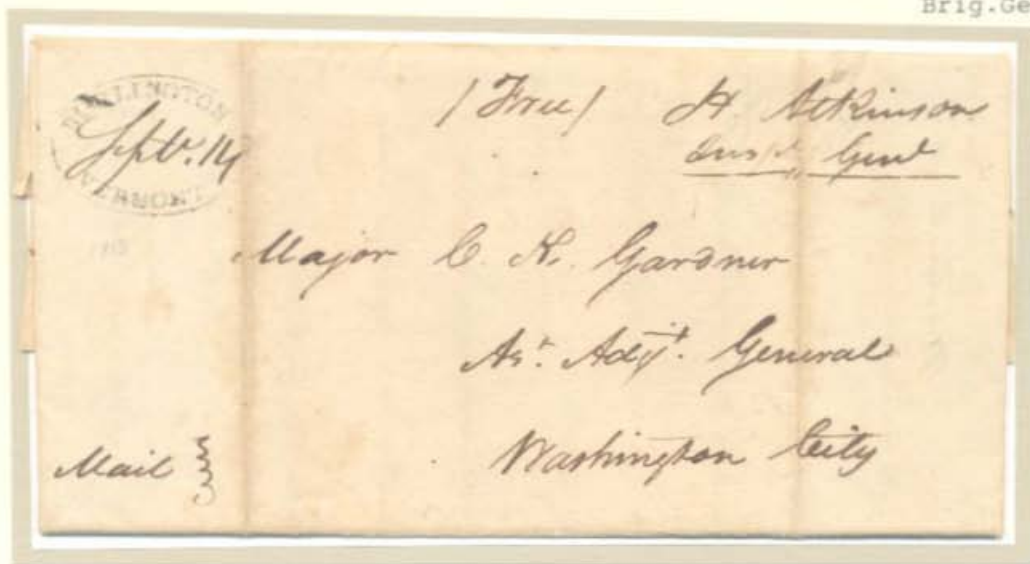 Brig.Ge
BURLINGTON
Sept. 14
VERMONT
/Free/ H. Atkinson
Insp. Genl
1813
Major C. K. Gardner
As.t Adjt. General
Washington City
Mail